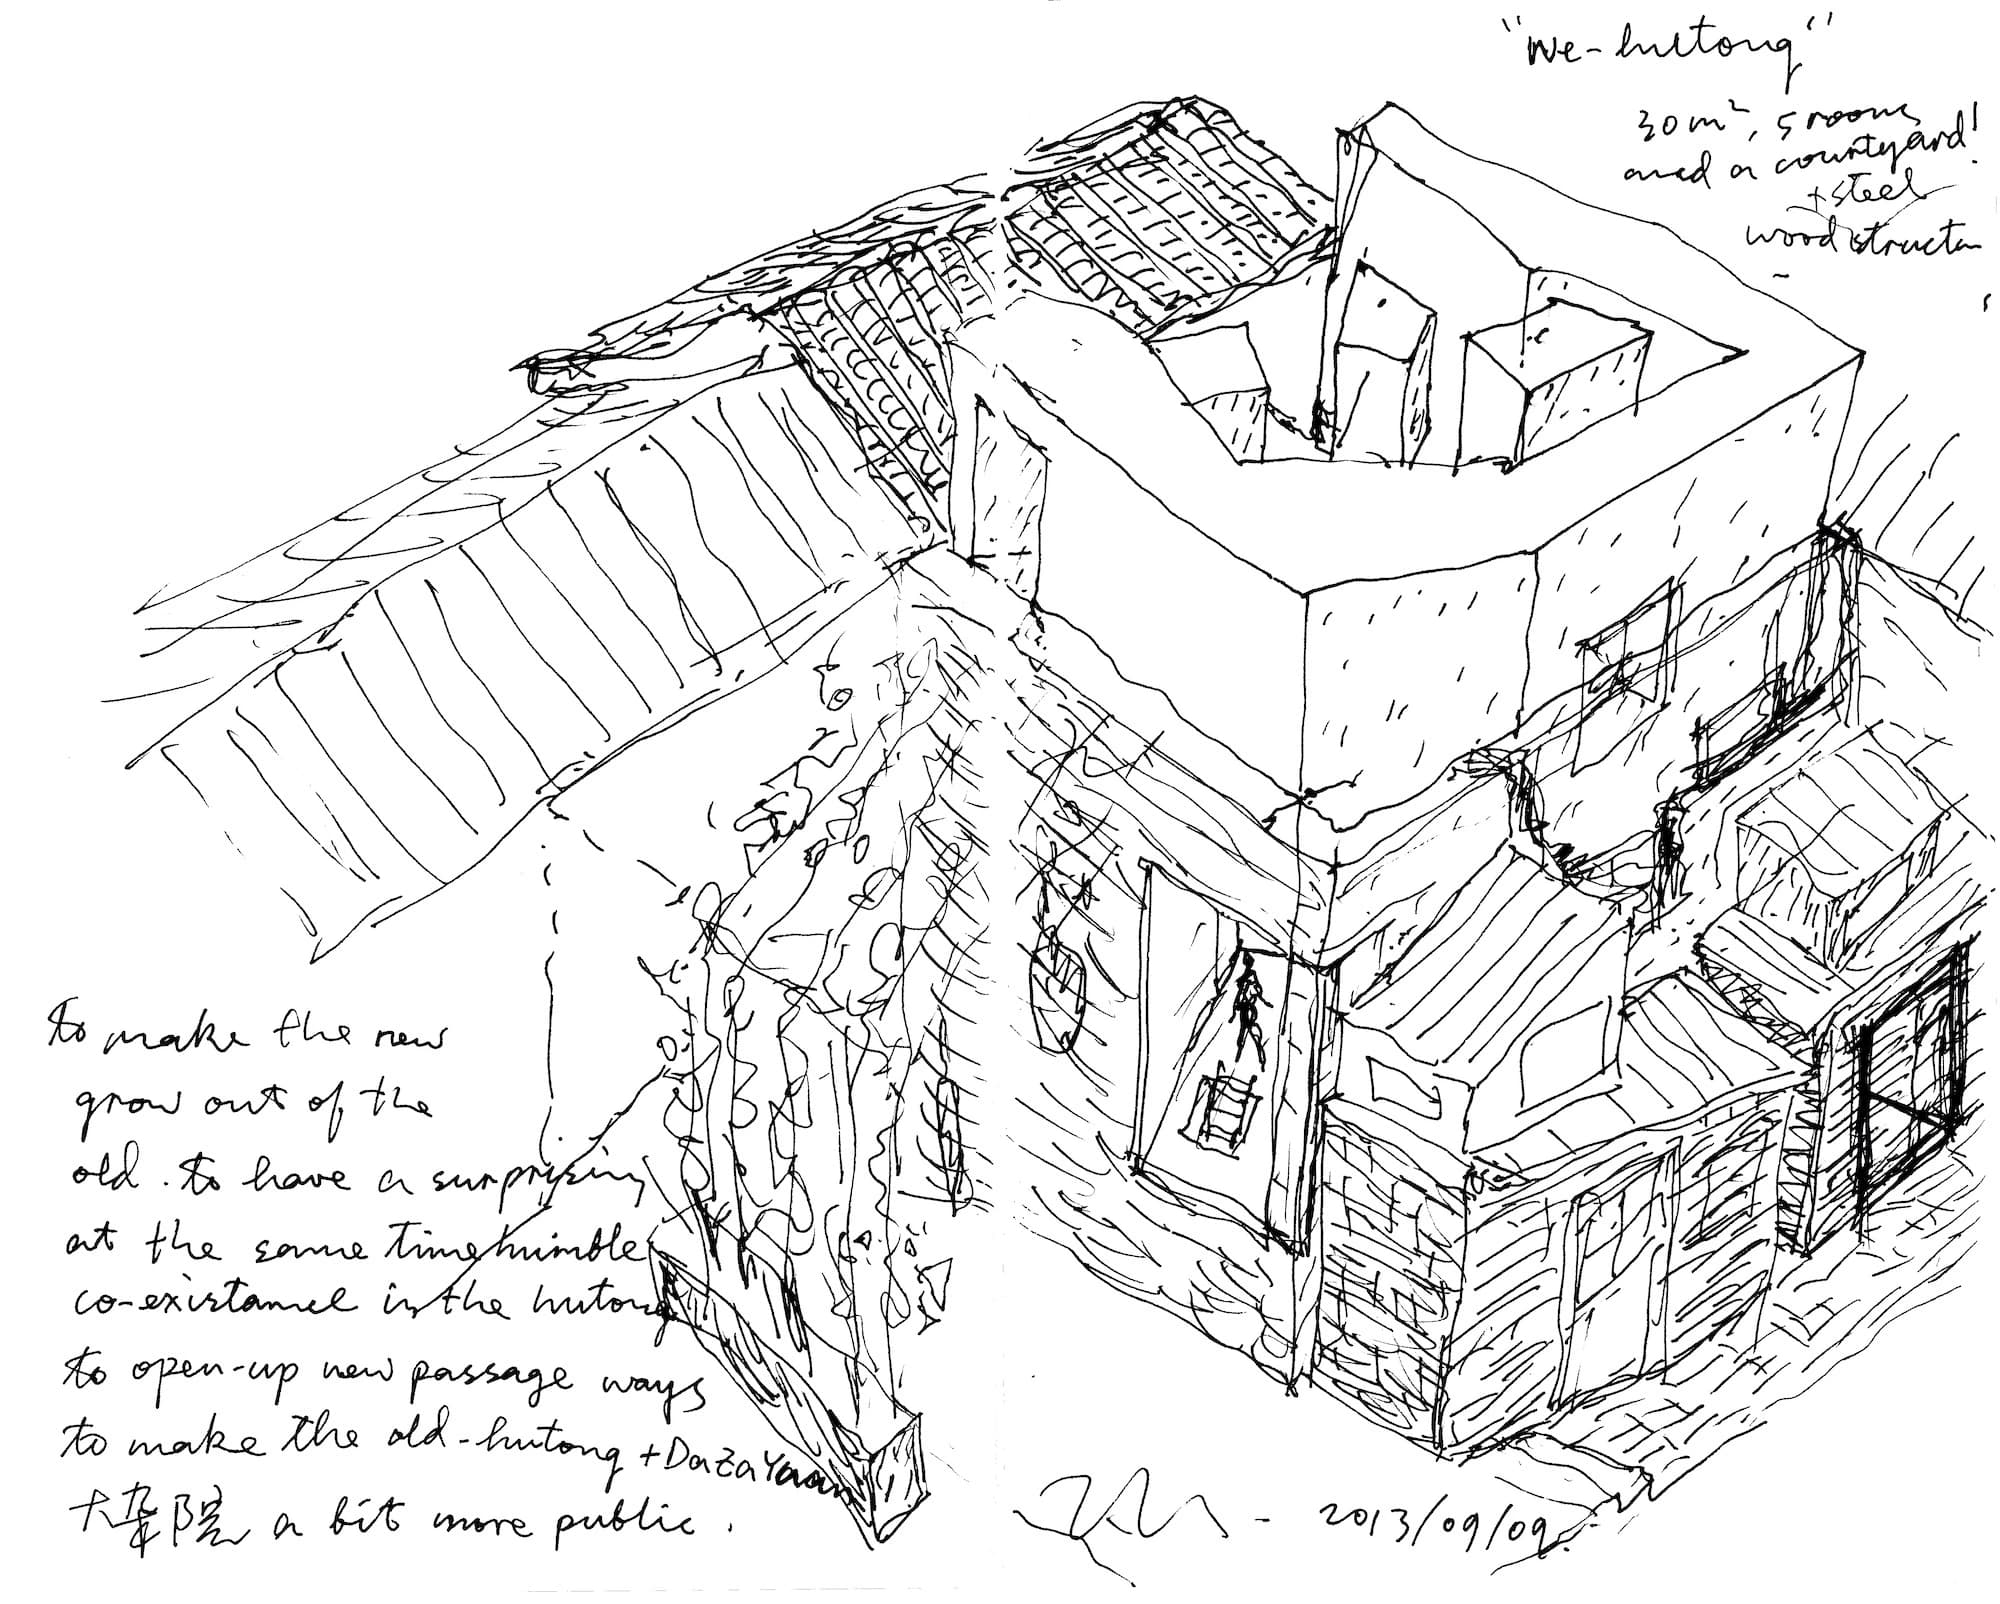 "We-hutong"
30m², 5 rooms
and a courtyard!
+ steel
wood structu
to make the new
grow out of the
old. to have a surprising
at the same time humble
co-existance in the hutong
to open-up new passage ways
to make the old-hutong + DaZaYuan
大杂院 a bit more public.
- 2013/09/09.